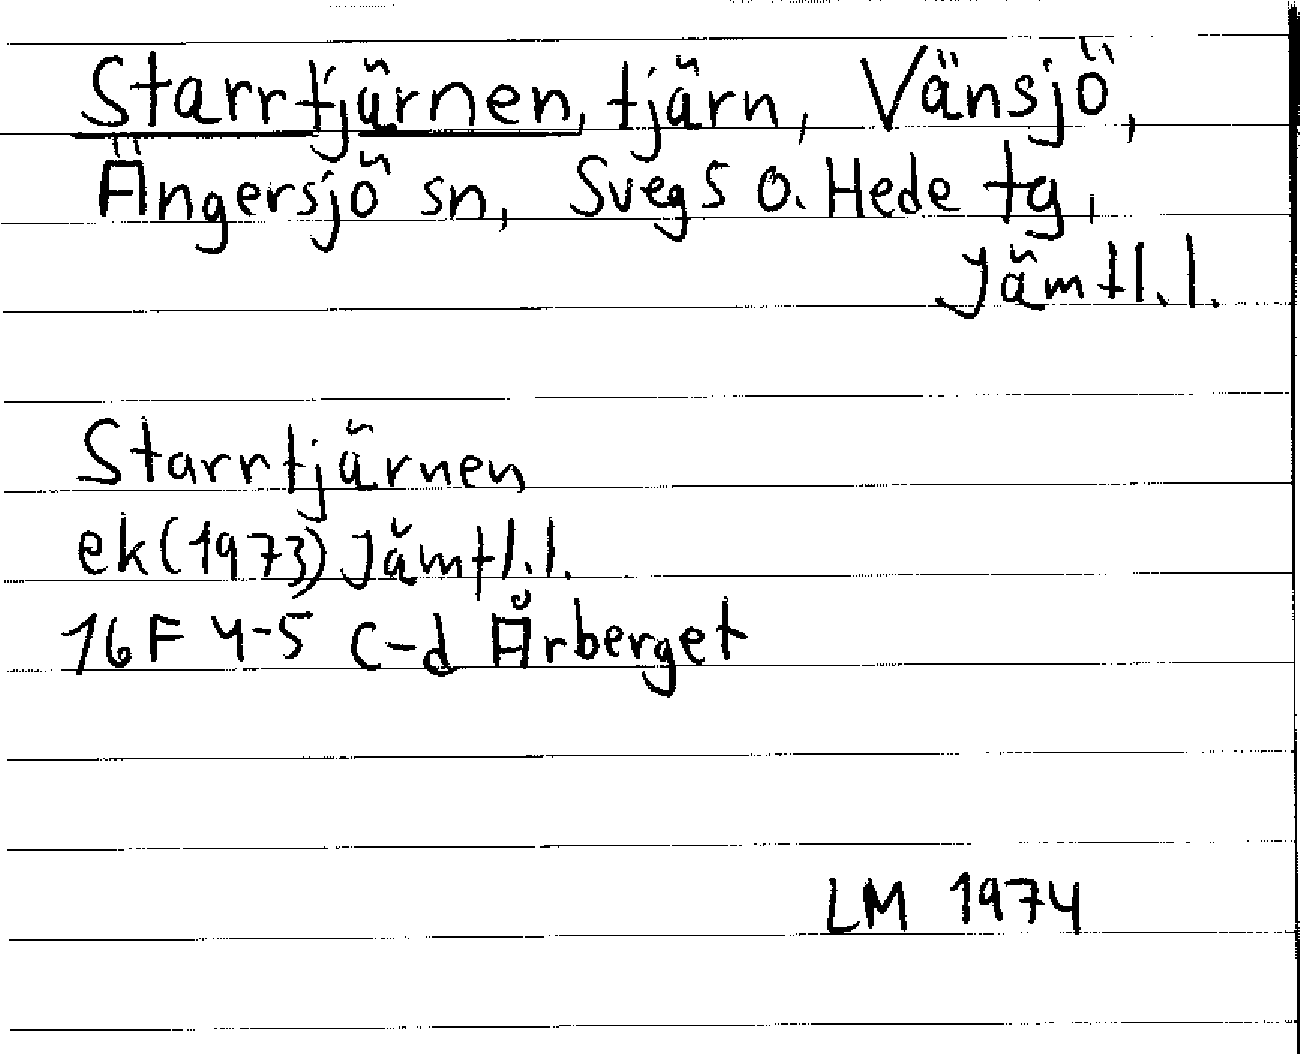 Starrtjärnen, tjärn, Vänsjö,
Ängersjö sn, Svegs o. Hede tg,
Jämtl. l.
Starrtjärnen
ek (1973) Jämtl. l.
16F 4-5 c-d Årberget
LM 1974